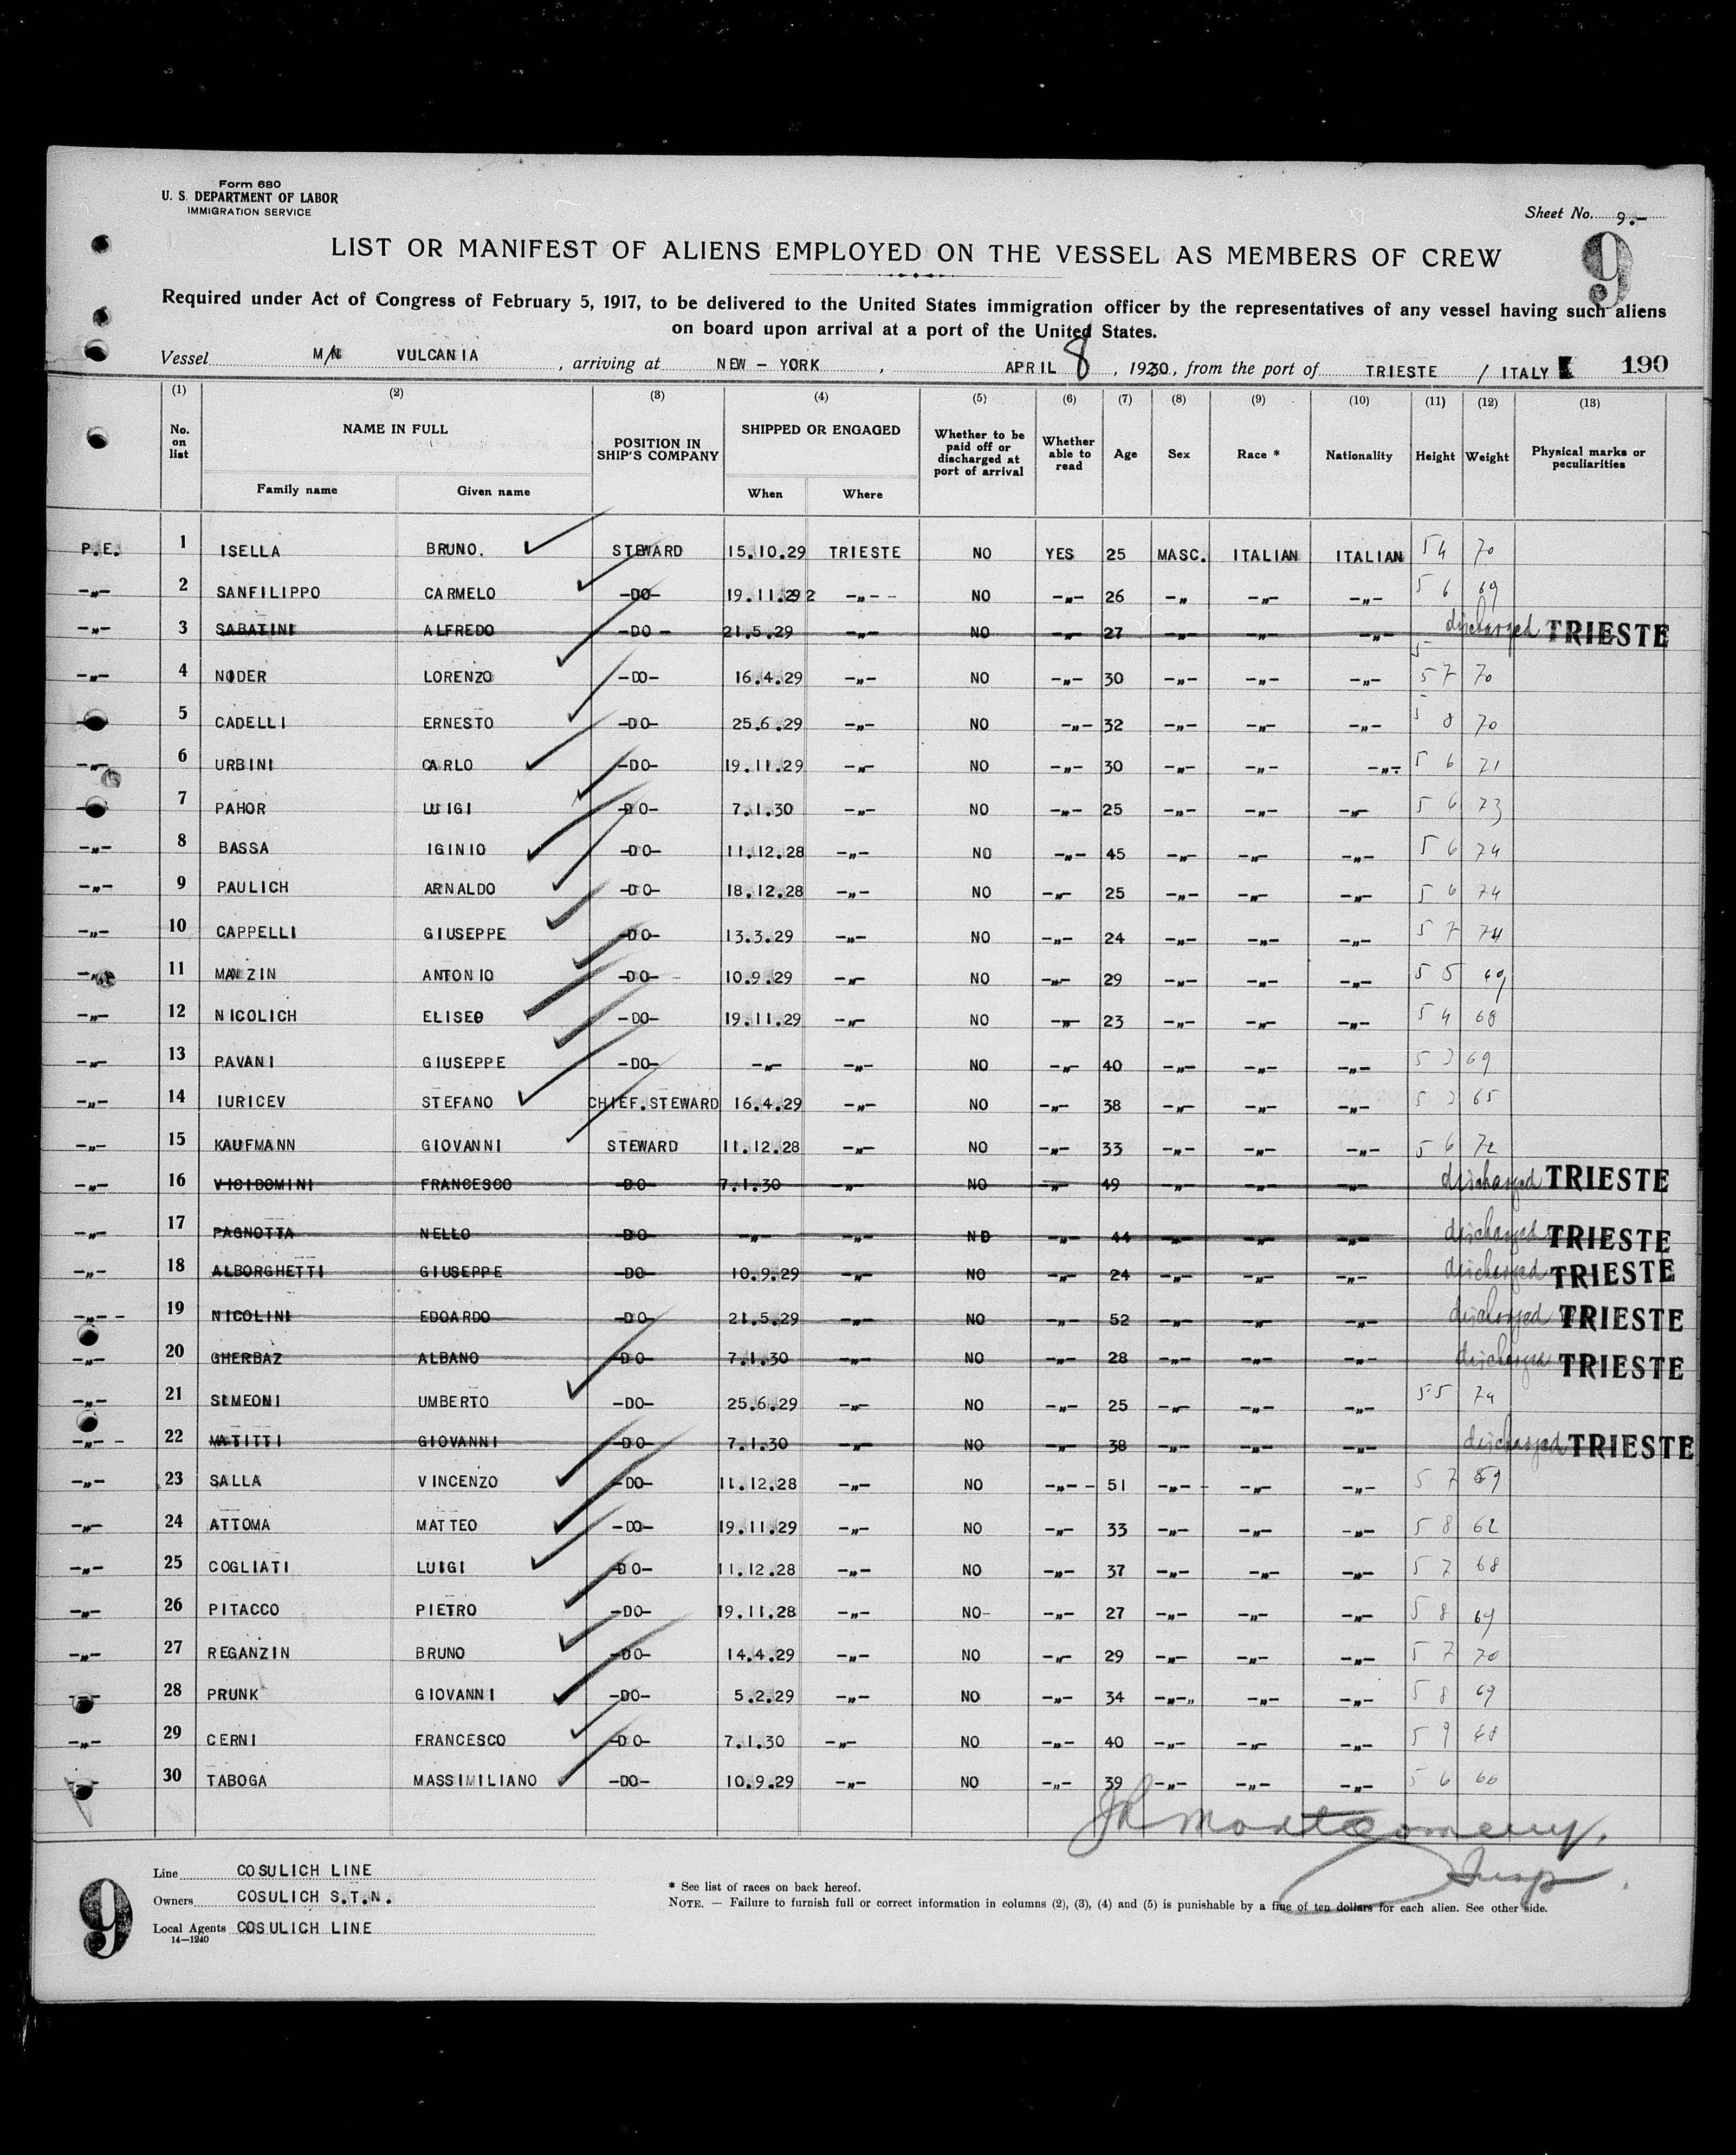 Form 680
U. S. DEPARTMENT OF LABOR
IMMIGRATION SERVICE
Sheet No. 9.-
9
LIST OR MANIFEST OF ALIENS EMPLOYED ON THE VESSEL AS MEMBERS OF CREW
Required under Act of Congress of February 5, 1917, to be delivered to the United States immigration officer by the representatives of any vessel having such aliens
on board upon arrival at a port of the United States.
Vessel M/N VULCANIA , arriving at NEW - YORK , APRIL 8 , 1930, from the port of TRIESTE / ITALY 190
(1) (2) (3) (4) (5) (6) (7) (8) (9) (10) (11) (12) (13)
No. on list NAME IN FULL POSITION IN SHIP'S COMPANY SHIPPED OR ENGAGED Whether to be paid off or discharged at port of arrival Whether able to read Age Sex Race * Nationality Height Weight Physical marks or peculiarities
Family name Given name When Where
P.E. 1 ISELLA BRUNO. STEWARD 15.10.29 TRIESTE NO YES 25 MASC. ITALIAN ITALIAN 5 4 70
-"- 2 SANFILIPPO CARMELO -DO- 19.11.292 -"-- NO -"- 26 -" -"- -"- 5 6 69
-"- 3 SABATINI ALFREDO -DO- 21.5.29 -"- NO -"- 27 -"- -"- -"- discharged TRIESTE
-"- 4 NODER LORENZO -DO- 16.4.29 -"- NO -"- 30 -"- -"- -"- 5 7 70
5 CADELLI ERNESTO -DO- 25.6.29 -"- NO -"- 32 -"- -"- -"- 5 8 70
-"- 6 URBINI CARLO -DO- 19.11.29 -"- NO -"- 30 -"- -"- -"- 5 6 71
7 PAHOR LUIGI -DO- 7.1.30 -"- NO -"- 25 -"- -"- -"- 5 6 73
-"- 8 BASSA IGINIO -DO- 11.12.28 -"- NO -"- 45 -"- -"- -"- 5 6 74
-"- 9 PAULICH ARNALDO -DO- 18.12.28 -"- NO -"- 25 -"- -"- -"- 5 6 74
-"- 10 CAPPELLI GIUSEPPE -DO- 13.3.29 -"- NO -"- 24 -"- -"- -"- 5 7 74
-"- 11 MANZIN ANTONIO -DO- 10.9.29 -"- NO -"- 29 -"- -"- -"- 5 5 69
-"- 12 NICOLICH ELISEO -DO- 19.11.29 -"- NO -"- 23 -"- -"- -"- 5 4 68
-"- 13 PAVANI GIUSEPPE -DO- -"- -"- NO -"- 40 -"- -"- -"- 5 69
-"- 14 IURICEV STEFANO CHIEF.STEWARD 16.4.29 -"- NO -"- 38 -"- -"- -"- 5 65
-"- 15 KAUFMANN GIOVANNI STEWARD 11.12.28 -"- NO -"- 33 -"- -"- -"- 5 6 72
-"- 16 VICIDOMINI FRANCESCO -DO- 7.1.30 -"- NO -"- 49 -"- -"- -"- discharged TRIESTE
-"- 17 PAGNOTTA NELLO -DO- -"- -"- NO -"- 44 -"- -"- -"- discharged TRIESTE
-"- 18 ALBORGHETTI GIUSEPPE -DO- 10.9.29 -"- NO -"- 24 -"- -"- -"- discharged TRIESTE
-"-- 19 NICOLINI EDOARDO -DO- 21.5.29 -"- NO -"- 52 -"- -"- -"- discharged TRIESTE
-"- 20 GHERBAZ ALBANO -DO- 7.1.30 -"- NO -"- 28 -"- -"- -"- discharged TRIESTE
-"- 21 SIMEONI UMBERTO -DO- 25.6.29 -"- NO -"- 25 -"- -"- -"- 5 5 74
-"-- 22 MATITTI GIOVANNI -DO- 7.1.30 -"- NO -"- 38 -"- -"- -"- discharged TRIESTE
-"- 23 SALLA VINCENZO -DO- 11.12.28 -"- NO -"-- 51 -"-- -"- -"- 5 7 69
-"- 24 ATTOMA MATTEO -DO- 19.11.29 -"- NO -"- 33 -"- -"- -"- 5 8 62
-"- 25 COGLIATI LUIGI -DO- 11.12.28 -"- NO -"- 37 -"- -"- -"- 5 7 68
-"- 26 PITACCO PIETRO -DO- 19.11.28 -"- NO- -"- 27 -"- -"- -"- 5 8 69
-"- 27 REGANZIN BRUNO -DO- 14.4.29 -"- NO -"- 29 -"- -"- -"- 5 7 70
28 PRUNK GIOVANNI -DO- 5.2.29 -"- NO -"- 34 -"-" -"- -"- 5 8 69
-"- 29 CERNI FRANCESCO -DO- 7.1.30 -"- NO -"- 40 -"- -"- -"- 5 9 68
30 TABOGA MASSIMILIANO -DO- 10.9.29 -"- NO -"- 39 -"- -"- -"- 5 6 66
JR Montgomery.
Insp.
9
Line COSULICH LINE
Owners COSULICH S.T.N.
Local Agents COSULICH LINE
14—1240
* See list of races on back hereof.
NOTE. — Failure to furnish full or correct information in columns (2), (3), (4) and (5) is punishable by a fine of ten dollars for each alien. See other side.